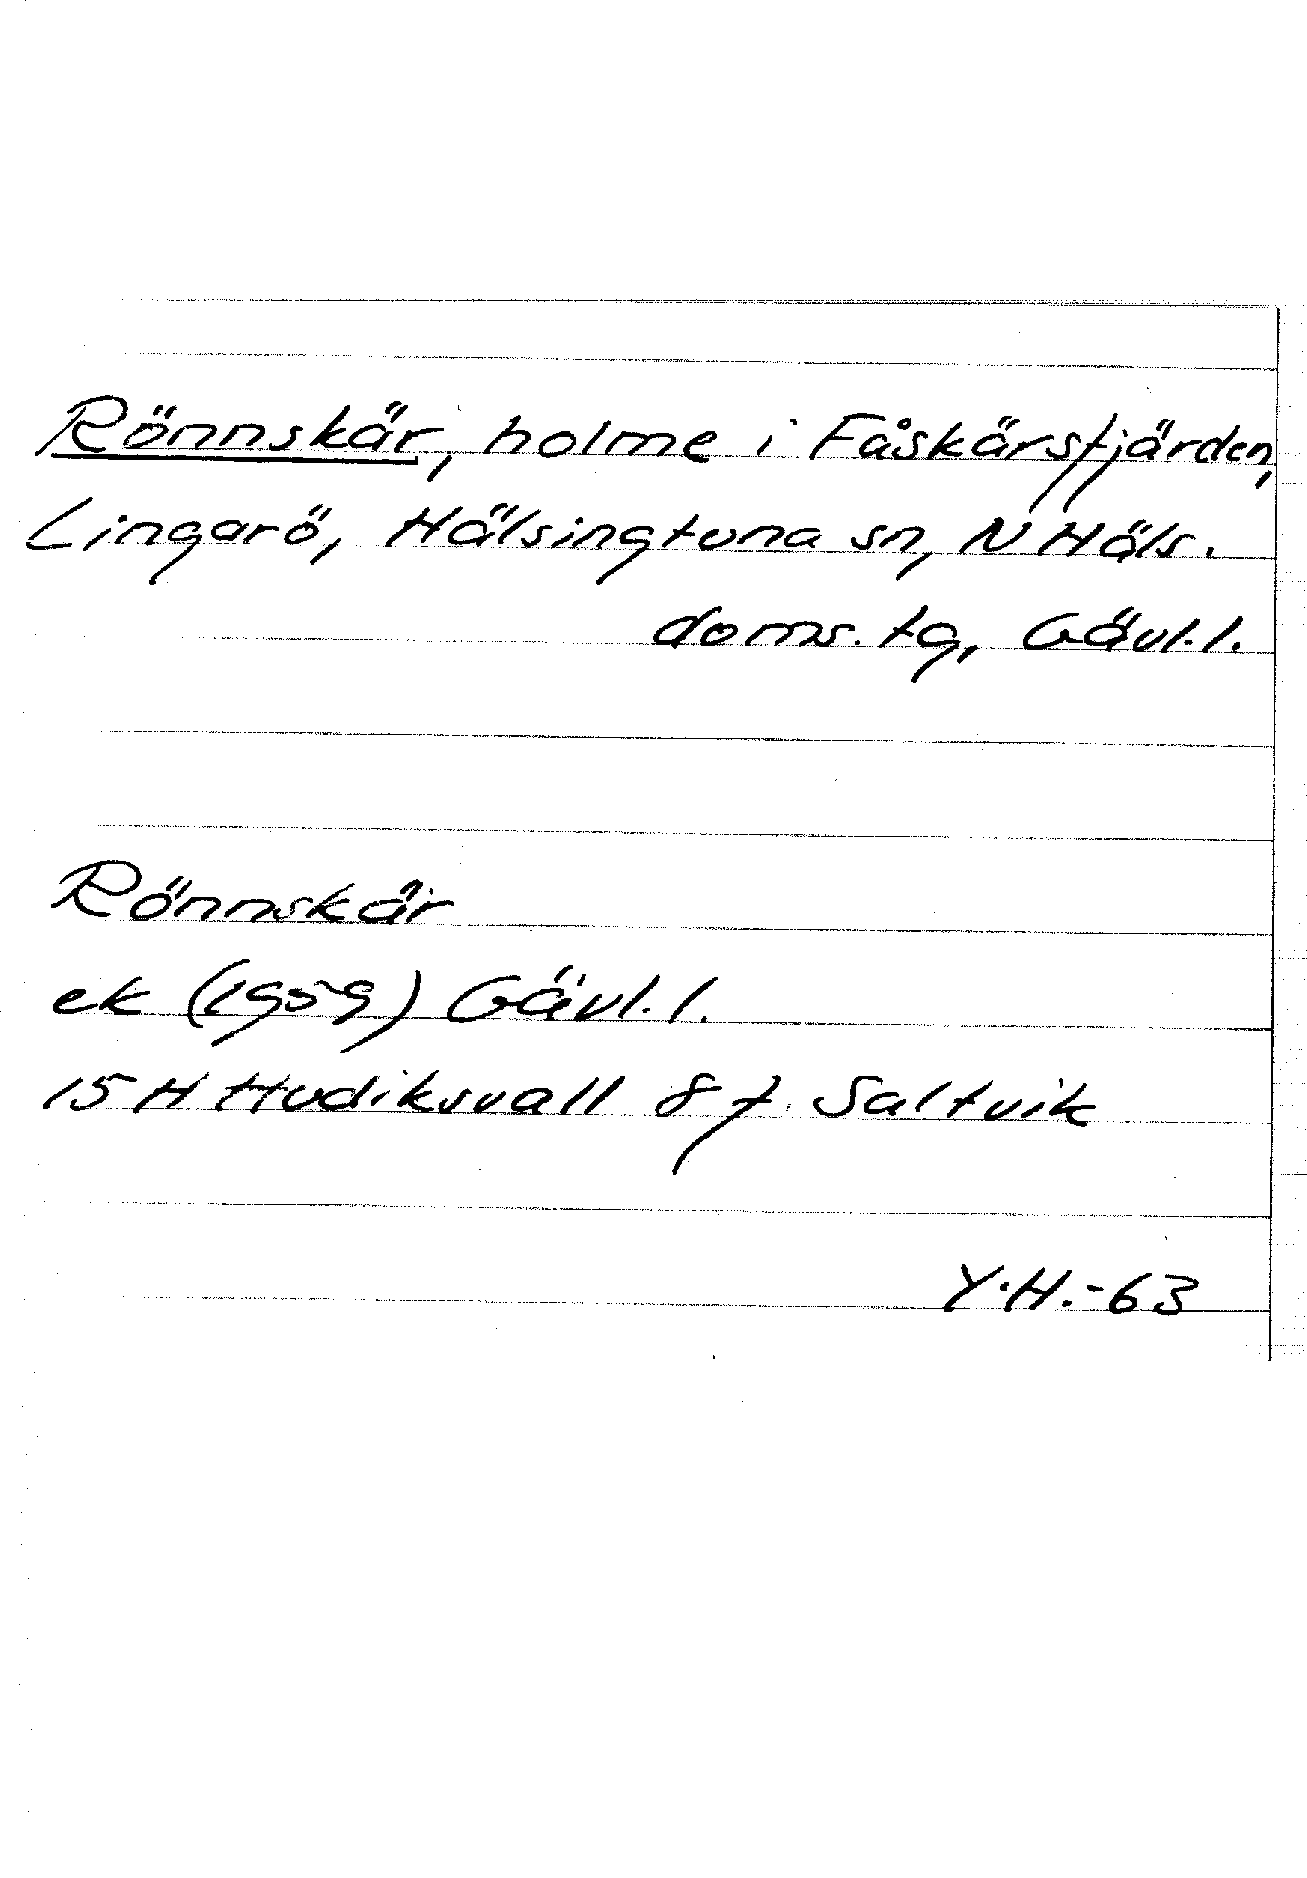 Rönnskär, holme i Fåskärsfjärden,
Lingarö, Hälsingtuna sn, N Häls.
doms. tg, Gävl. l.
Rönnskär
ek (1959) Gävl. l.
15 H Hudiksvall 8 f Saltvik
Y.H.-63